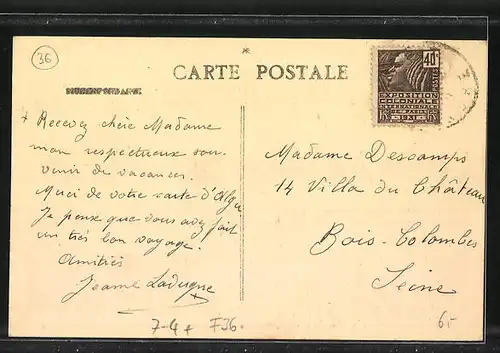 36
CARTE POSTALE
CORRESPONDANCE
40c
POSTES
EXPOSITION
COLONIALE
INTERNATIONALE
PARIS
1931
Recevez chère Madame
mon respectueux sou-
venir de vacances.
Merci de votre carte d'Alger
Je pense que vous avez fait
un très bon voyage.
Amitiés
Jeanne
Madame Descamps
14 Villa du Château
Bois-Colombes
Seine
7-4 F36.
65